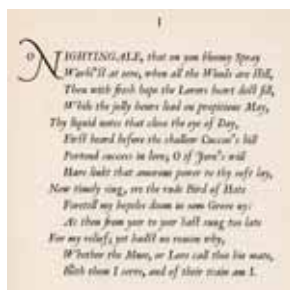 I
O NIGHTINGALE, that on yon bloomy Spray
Warbl'st at eeve, when all the Woods are still,
Thou with fresh hope the Lovers heart dost fill,
While the jolly hours lead on propitious May,
Thy liquid notes that close the eye of Day,
First heard before the shallow Cuccoo's bill
Portend success in love; O if Jove's will
Have linkt that amorous power to thy soft lay,
Now timely sing, ere the rude Bird of Hate
Foretell my hopeles doom in som Grove ny:
As thou from yeer to yeer hast sung too late
For my relief; yet hadst no reason why,
Whether the Muse, or Love call thee his mate,
Both them I serve, and of their train am I.